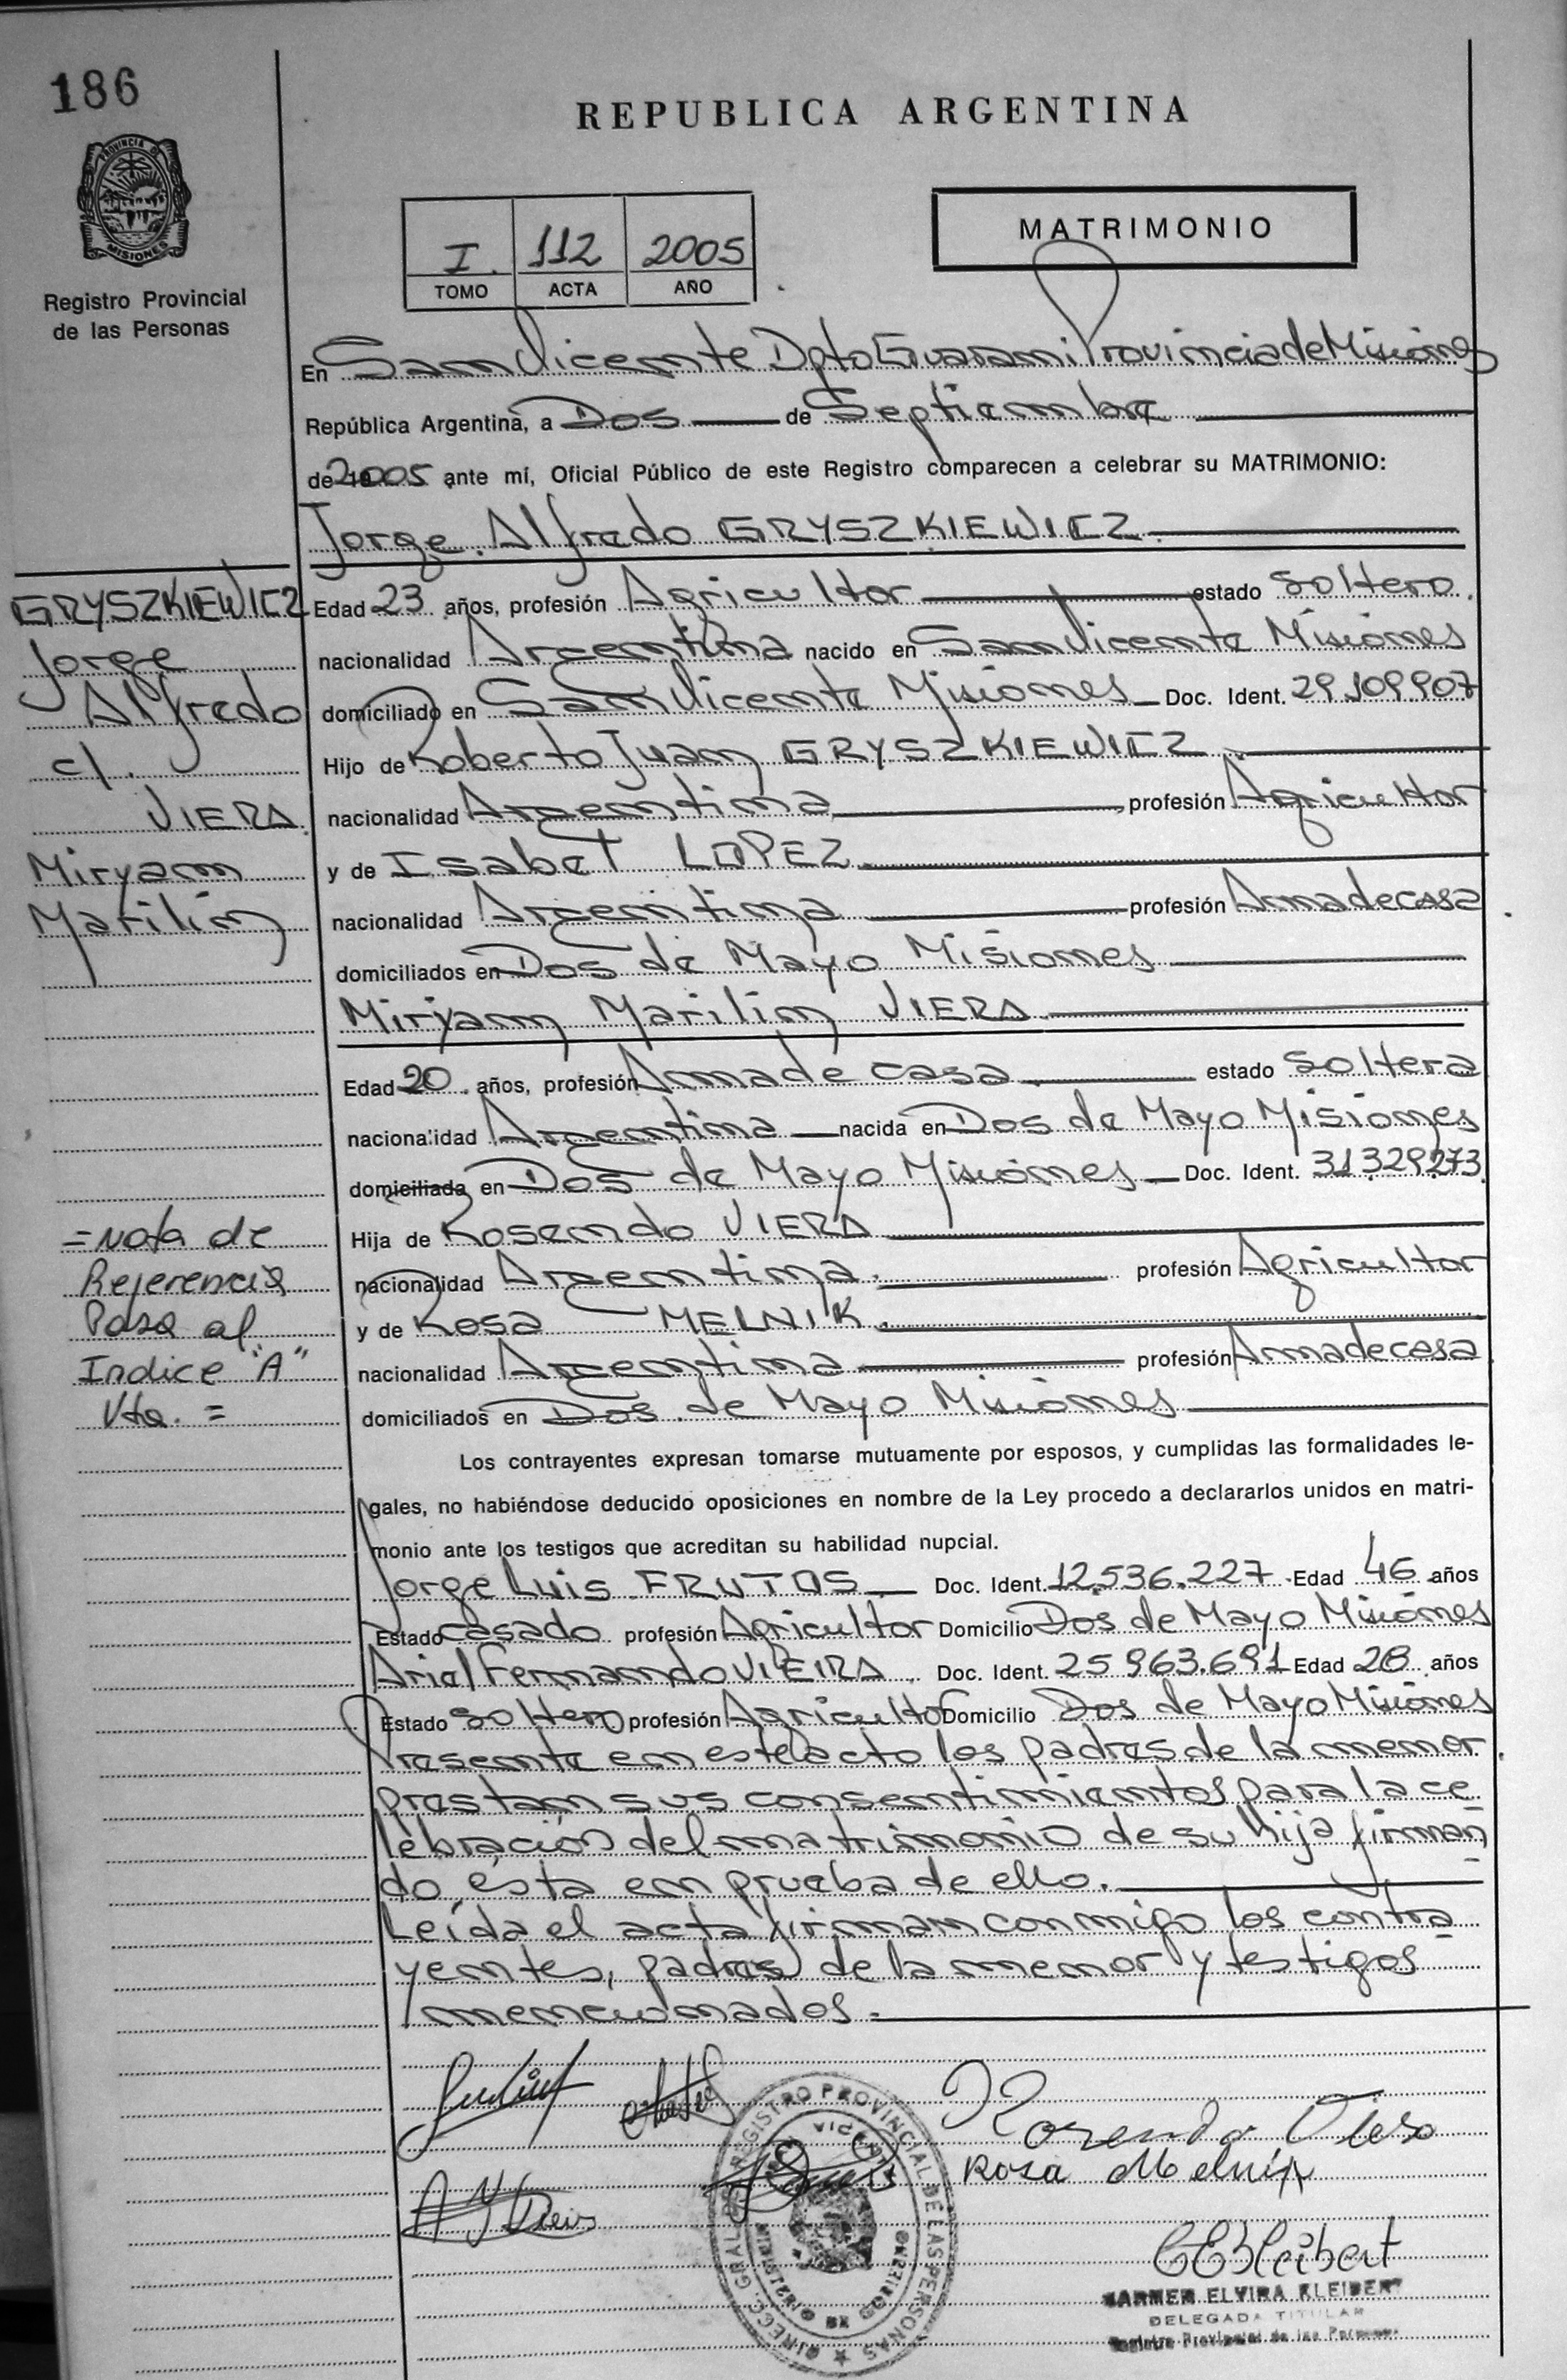 186
REPUBLICA ARGENTINA
PROVINCIA DE
MISIONES
Registro Provincial
de las Personas
I. 112 2005
TOMO ACTA AÑO
MATRIMONIO
En San Vicente Dpto Guarani Provincia de Misiones
República Argentina, a Dos de Septiembre
de 2005 ante mí, Oficial Público de este Registro comparecen a celebrar su MATRIMONIO:
Jorge Alfredo GRYSZKIEWICZ
GRYSZKIEWICZ
Jorge
Alfredo
c/.
VIERA
Miryam
Marilin
Edad 23 años, profesión Agricultor estado soltero.
nacionalidad Argentina nacido en San Vicente Misiones
domiciliado en San Vicente Misiones Doc. Ident. 29.109.907
Hijo de Roberto Juan GRYSZKIEWICZ
nacionalidad Argentina profesión Agricultor
y de Isabel LOPEZ.
nacionalidad Argentina profesión Amadecasa
domiciliados en Dos de Mayo Misiones
Miryam Marilin VIERA
Edad 20 años, profesión Amade casa estado soltera
nacionalidad Argentina nacida en Dos de Mayo Misiones
domiciliada en Dos de Mayo Misiones Doc. Ident. 31.329.273
Hija de Rosendo VIERA
nacionalidad Argentina. profesión Agricultor
y de Rosa MELNIK.
nacionalidad Argentina profesión Amadecasa
domiciliados en Dos de Mayo Misiones
=Nota de
Referencia
Pasa al
Indice "A"
Vta. =
Los contrayentes expresan tomarse mutuamente por esposos, y cumplidas las formalidades le-
gales, no habiéndose deducido oposiciones en nombre de la Ley procedo a declararlos unidos en matri-
monio ante los testigos que acreditan su habilidad nupcial.
Jorge Luis FRUTOS Doc. Ident. 12.536.227 Edad 46 años
Estado casado profesión Agricultor Domicilio Dos de Mayo Misiones
Ariel Fernando VIEIRA Doc. Ident. 25.963.691 Edad 28 años
Estado soltero profesión Agricultor Domicilio Dos de Mayo Misiones
Presente en este acto los padres de la menor
prestam sus consentimientos para la ce
lebración del matrimonio de su hija firman
do ésta en prueba de ello.
Leída el acta firman conmigo los contra
yentes, padres de la menor y testigos
mencionados.
Rosendo Viera
Rosa Melnik
DIRECC. GRAL. DEL REGISTRO PROVINCIAL DE LAS PERSONAS
MINISTERIO DE GOBIERNO
CEKleibert
CARMEN ELVIRA KLEIBERT
DELEGADA TITULAR
Registro Provincial de las Personas